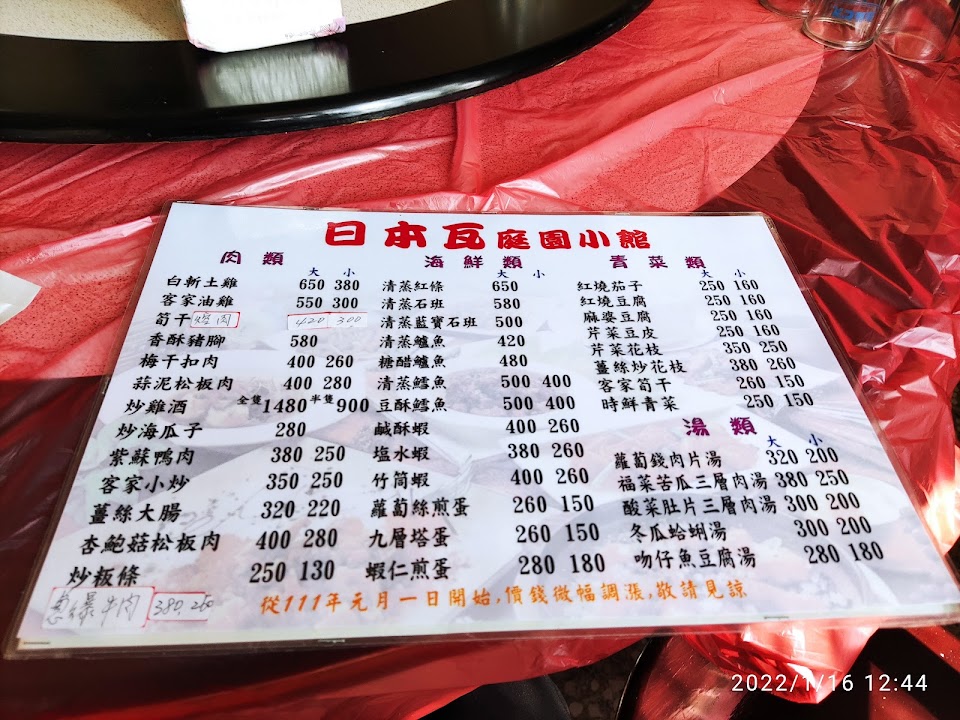 日本瓦庭園小館
肉類
大 小
白斬土雞 650 380
客家油雞 550 300
筍干焢肉 420 300
香酥豬腳 580
梅干扣肉 400 260
蒜泥松板肉 400 280
炒雞酒 全隻1480 半隻900
炒海瓜子 280
紫蘇鴨肉 380 250
客家小炒 350 250
薑絲大腸 320 220
杏鮑菇松板肉 400 280
炒粄條 250 130
蔥爆牛肉 380 260
海鮮類
大 小
清蒸紅條 650
清蒸石班 580
清蒸藍寶石班 500
清蒸鱸魚 420
糖醋鱸魚 480
清蒸鱈魚 500 400
豆酥鱈魚 500 400
鹹酥蝦 400 260
塩水蝦 380 260
竹筒蝦 400 260
蘿蔔絲煎蛋 260 150
九層塔蛋 260 150
蝦仁煎蛋 280 180
青菜類
大 小
紅燒茄子 250 160
紅燒豆腐 250 160
麻婆豆腐 250 160
芹菜豆皮 250 160
芹菜花枝 350 250
薑絲炒花枝 380 260
客家筍干 260 150
時鮮青菜 250 150
湯類
大 小
蘿蔔錢肉片湯 320 200
福菜苦瓜三層肉湯 380 250
酸菜肚片三層肉湯 300 200
冬瓜蛤蜊湯 300 200
吻仔魚豆腐湯 280 180
從111年元月一日開始,價錢微幅調漲,敬請見諒
2022/1/16 12:44